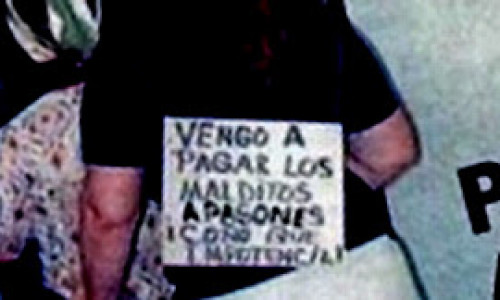 VENGO A
PAGAR LOS
MALDITOS
APAGONES
¡COÑO QUE
IMPOTENCIA!
P